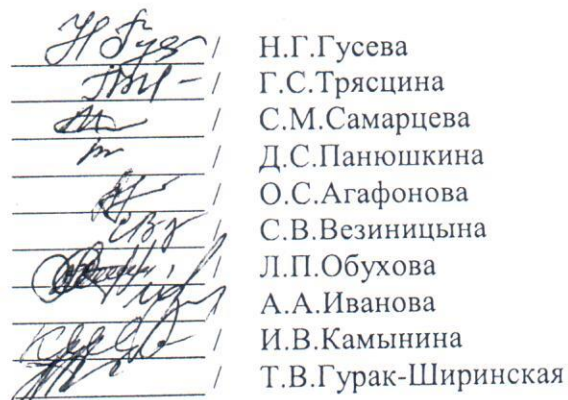 / Н.Г.Гусева
/ Г.С.Трясцина
/ С.М.Самарцева
/ Д.С.Панюшкина
/ О.С.Агафонова
/ С.В.Везиницына
/ Л.П.Обухова
А.А.Иванова
/ И.В.Камынина
/ Т.В.Гурак-Ширинская